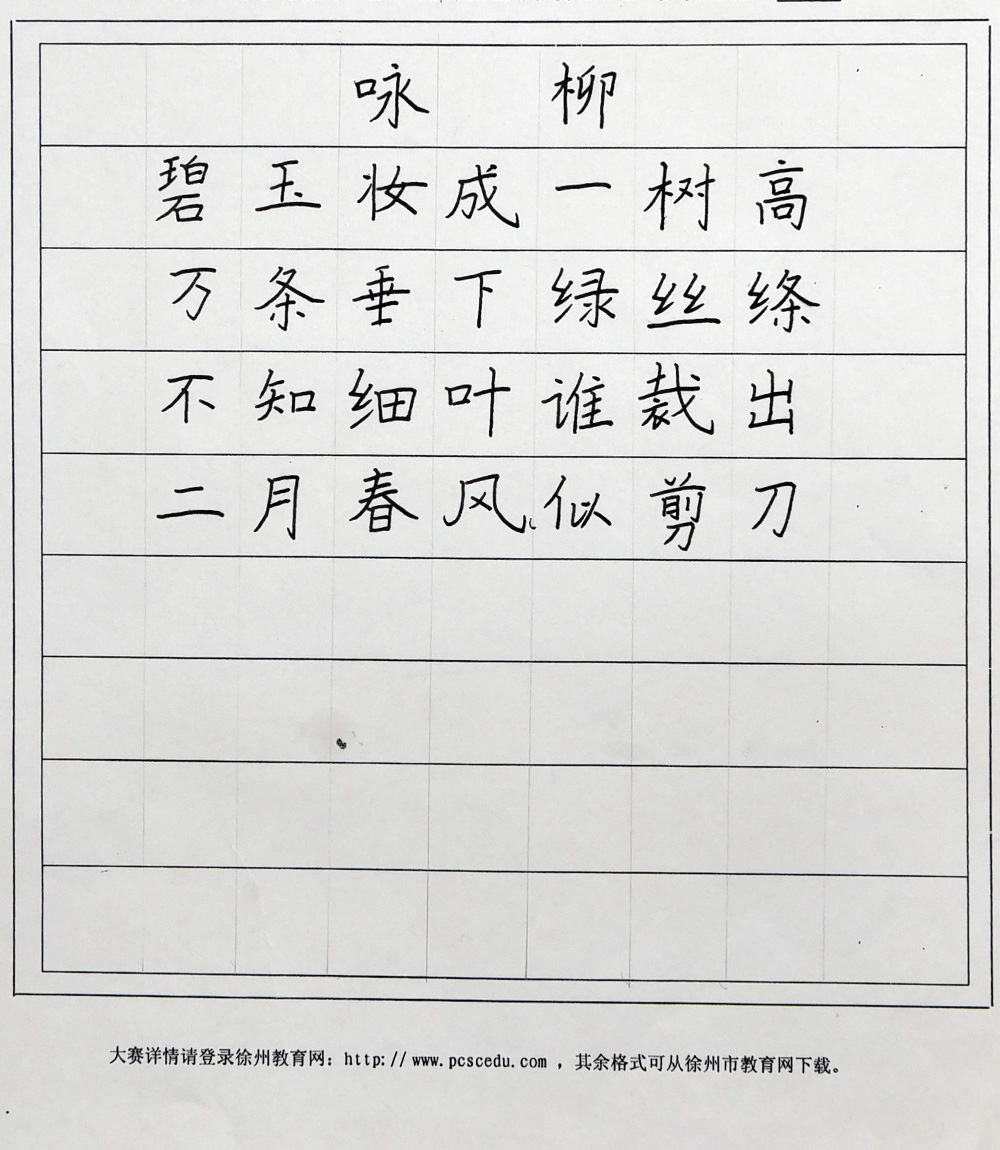 咏柳
碧玉妆成一树高
万条垂下绿丝绦
不知细叶谁裁出
二月春风似剪刀
大赛详情请登录徐州教育网：http://www.pcscedu.com，其余格式可从徐州市教育网下载。